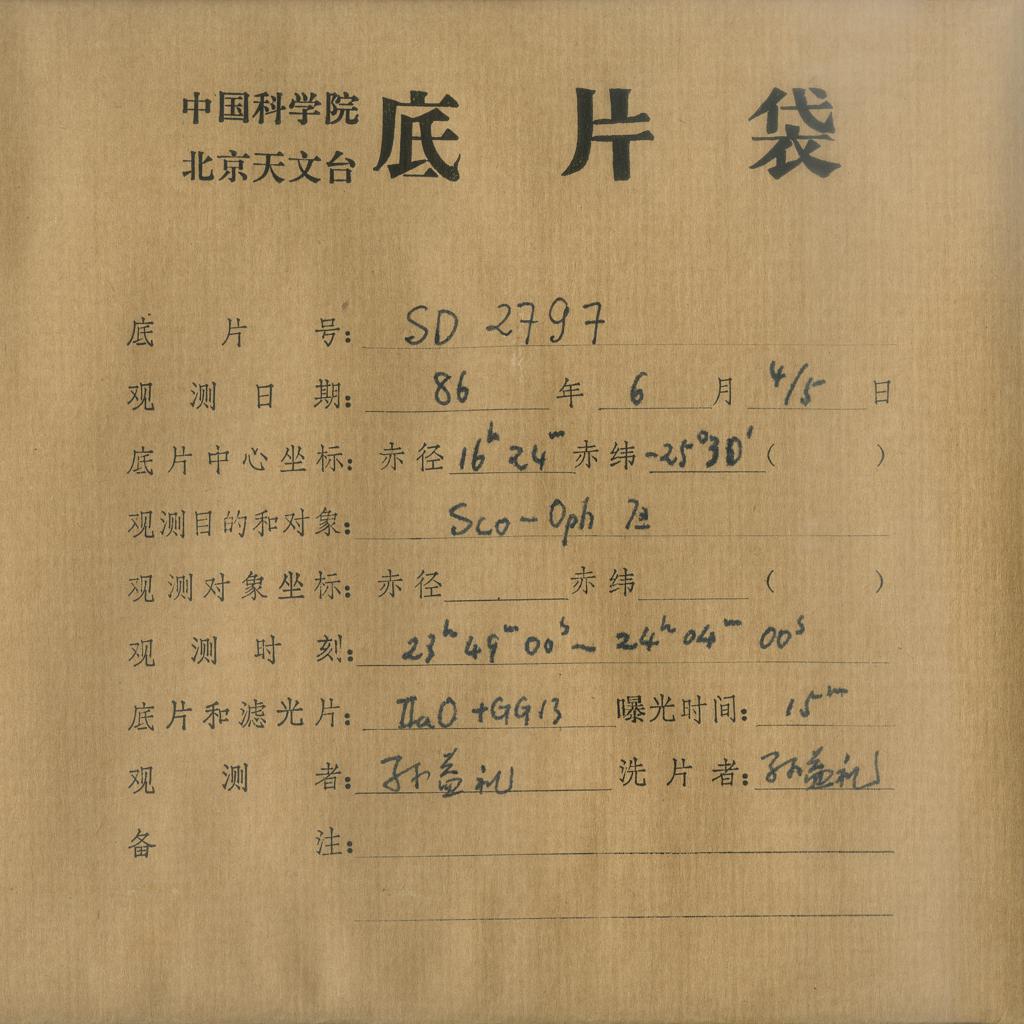 中国科学院
北京天文台
底片袋
底片号: SD 2797
观测日期: 86 年 6 月 4/5 日
底片中心坐标: 赤径 16h 24m 赤纬 -25°30′ ( )
观测目的和对象: Sco-Oph 区
观测对象坐标: 赤径 赤纬 ( )
观测时刻: 23h 49m 00s ~ 24h 04m 00s
底片和滤光片: IIaO + GG13 曝光时间: 15m
观测者: 孙益礼 洗片者: 孙益礼
备注: